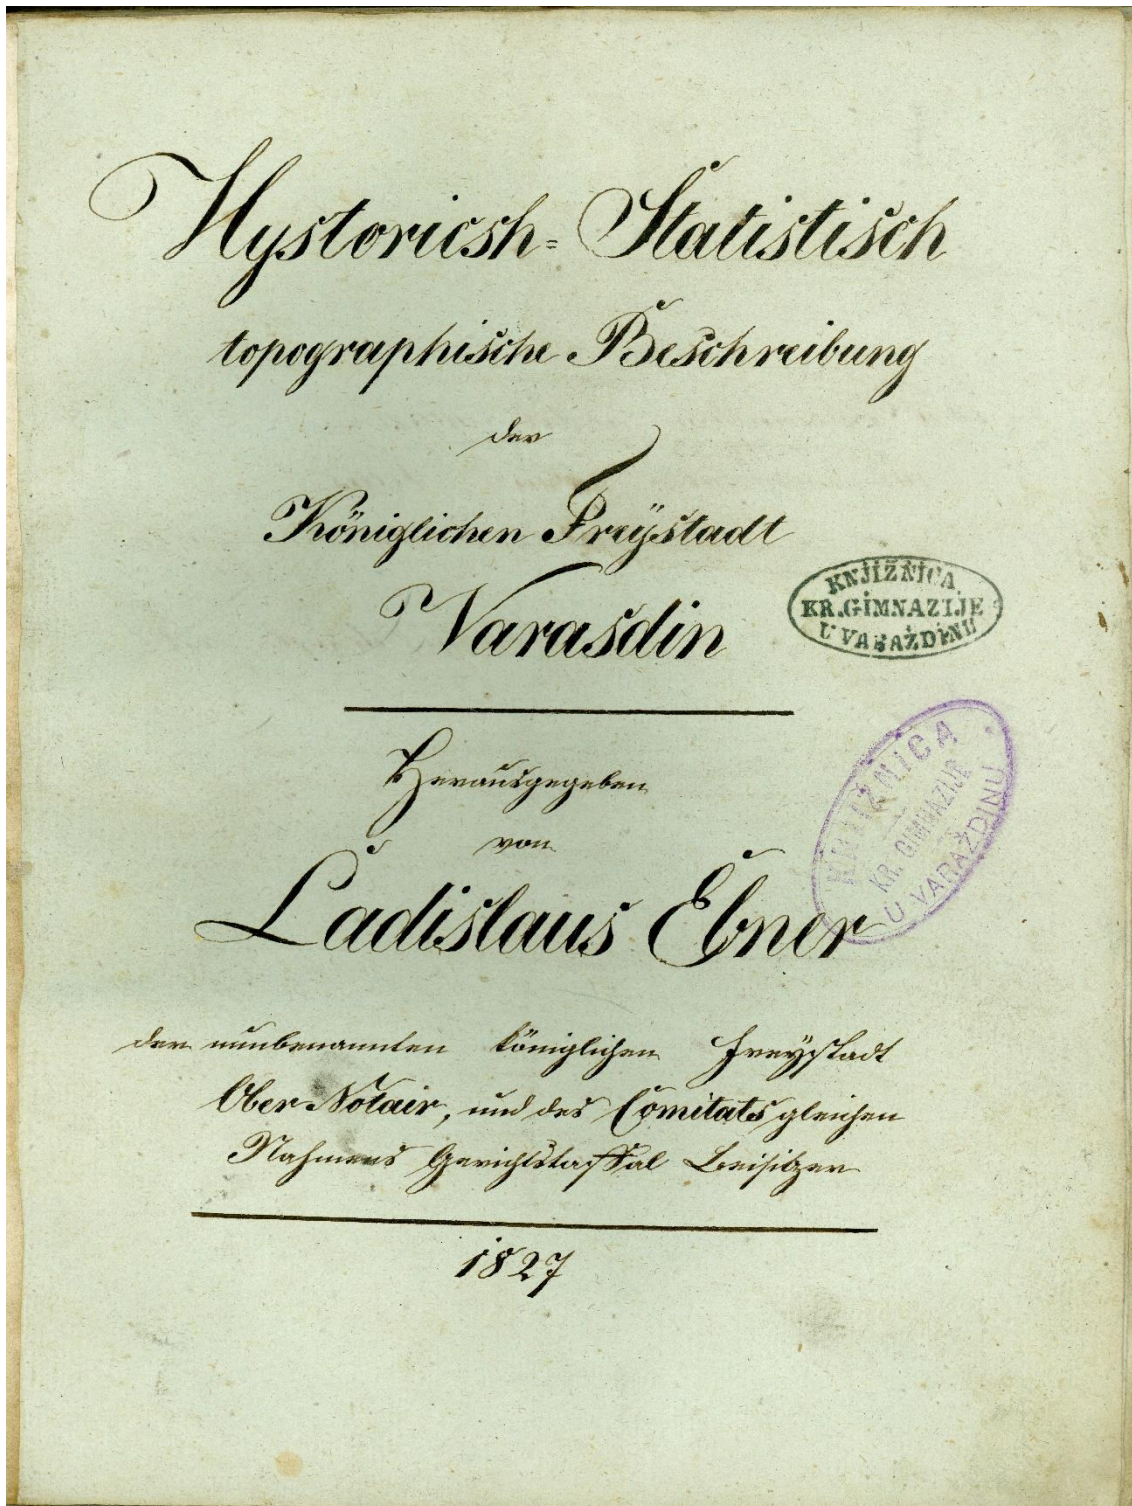 Hystoricsh= Statistisch
topographische Beschreibung
der
Königlichen Freÿstadt
Varasdin
KNJIŽNICA
KR. GIMNAZIJE
U VARAŽDINU
Herausgegeben
von
KNJIŽNICA
KR. GIMNAZIJE
U VARAŽDINU
Ladislaus Ebner
der nunbenannten königlichen Freystadt
Ober Notair, und des Comitats gleichen
Nahmens Gerichtstaffal Beisitzer
1827